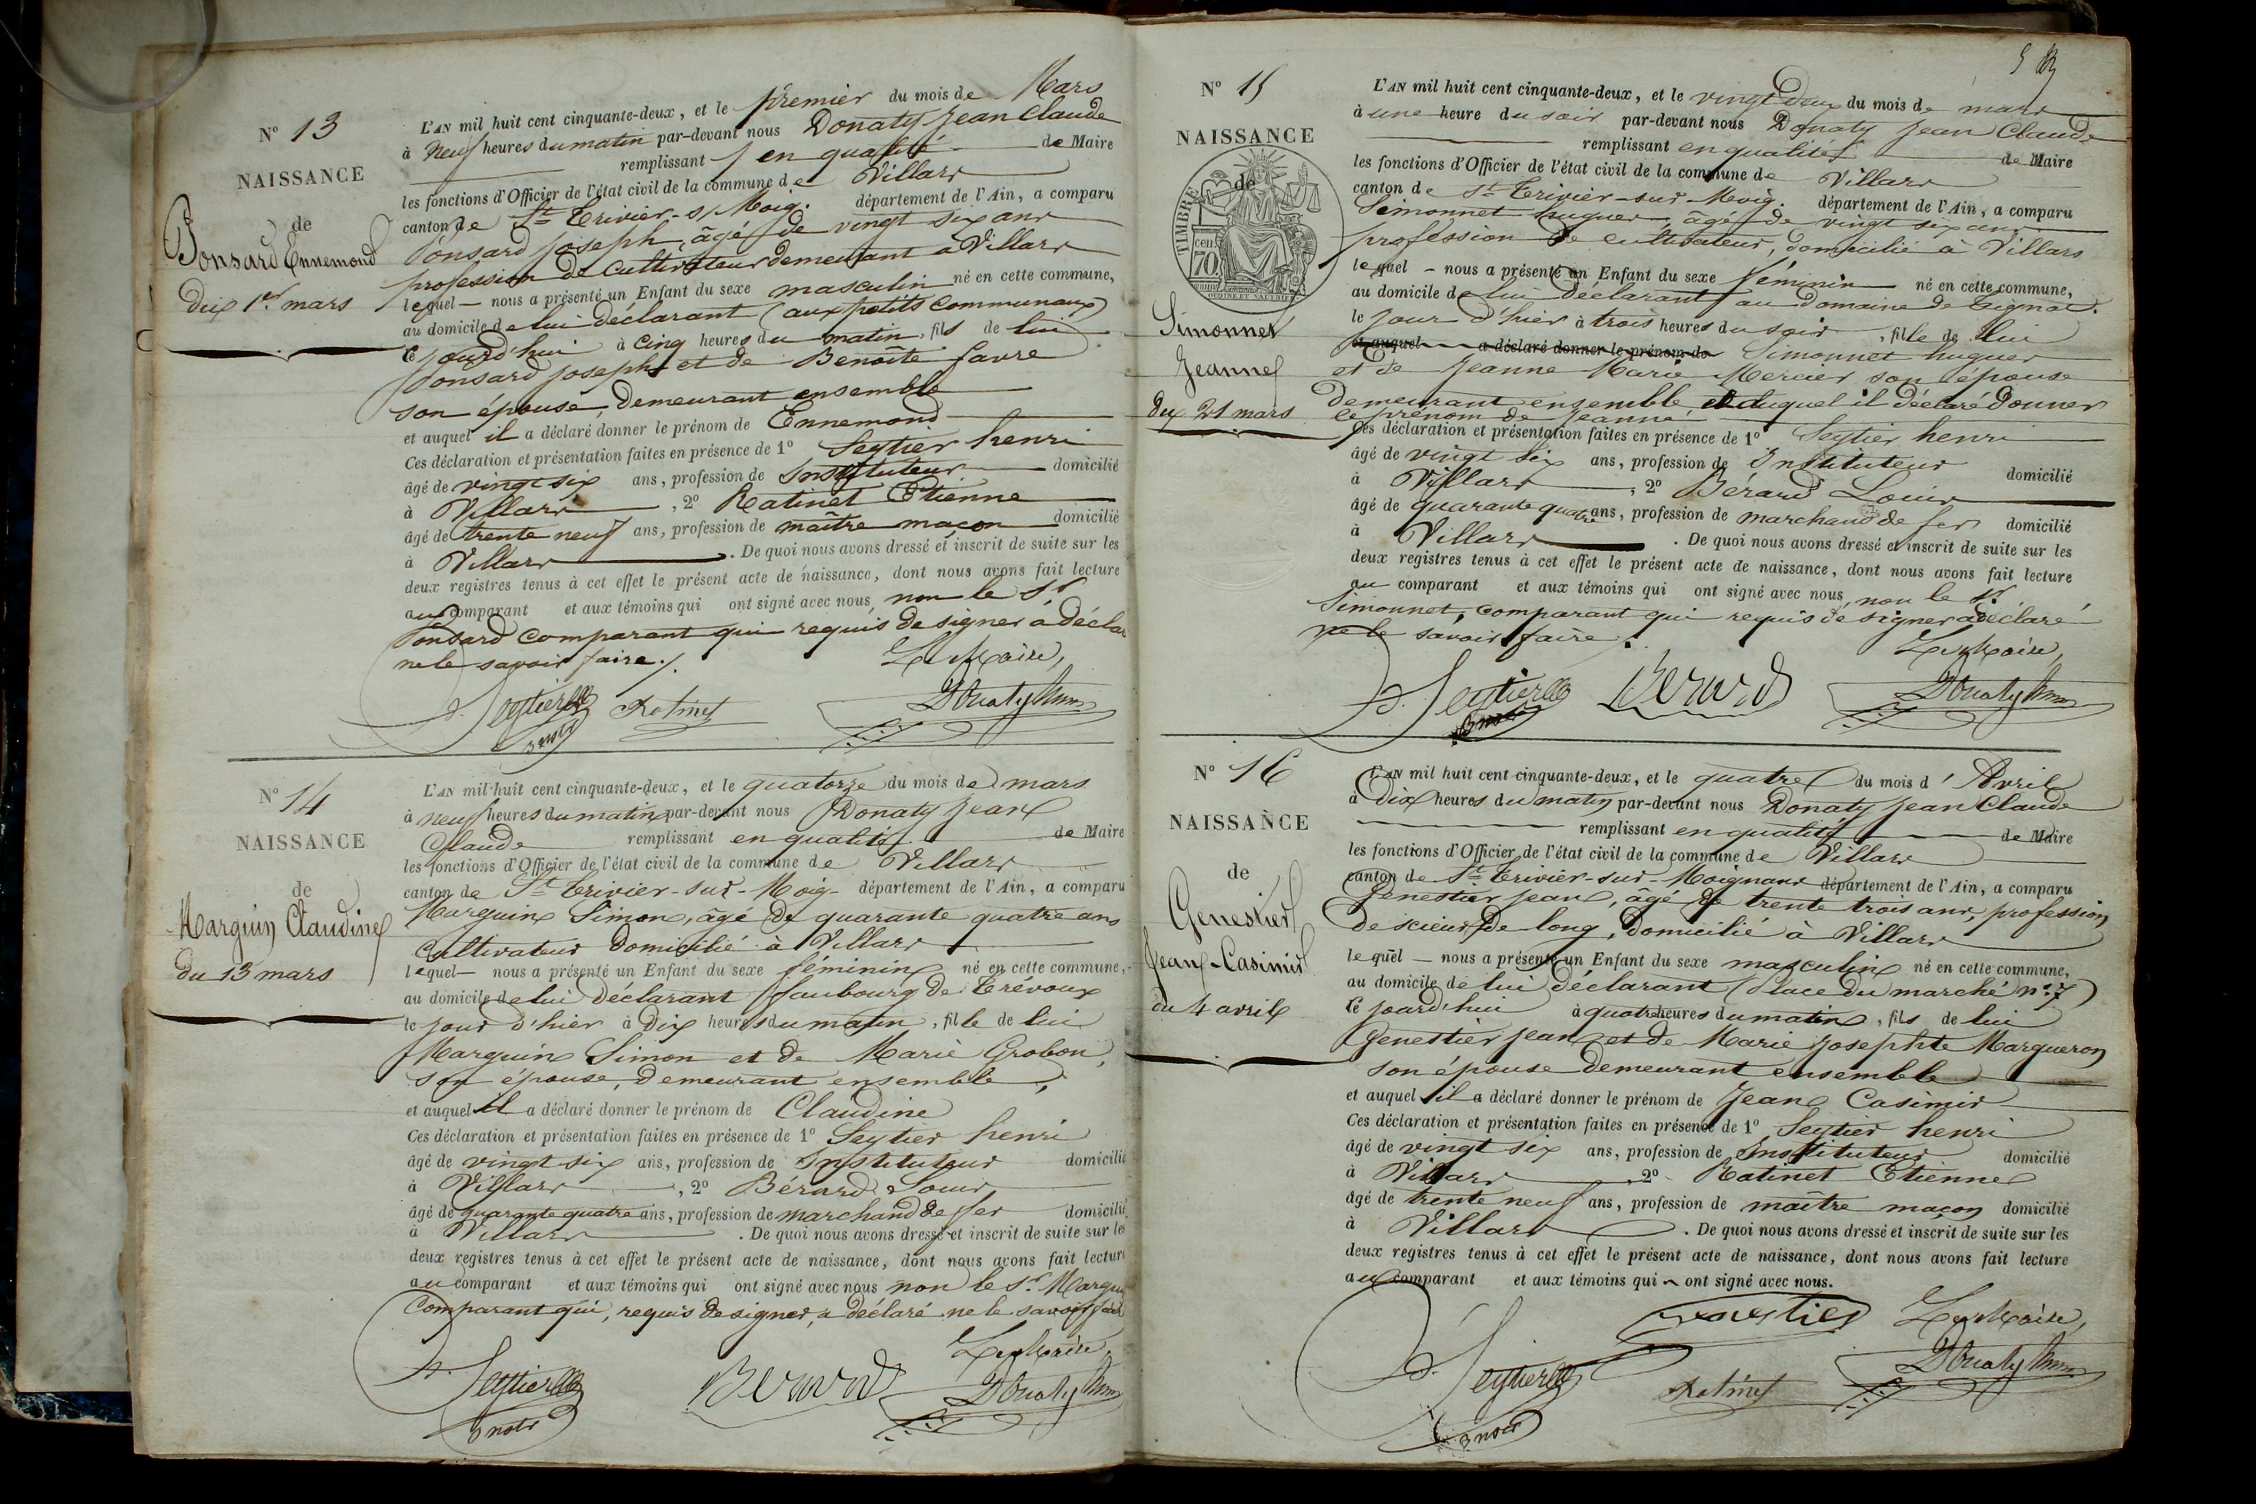 N° 13
NAISSANCE
de
Ponsard Ennemond
du 1er mars
L'AN mil huit cent cinquante-deux, et le premier du mois de Mars
à neuf heures du matin par-devant nous Donaty Jean Claude
remplissant en qualité de Maire
les fonctions d'Officier de l'état civil de la commune de Villars
canton de St Trivier-s/Moig. département de l'Ain, a comparu
Ponsard Joseph, âgé de vingt six ans
profession de cultivateur demeurant à Villars
lequel – nous a présenté un Enfant du sexe masculin né en cette commune,
au domicile de lui déclarant (aux petits communaux)
le jourd'hui à cinq heures du matin, fils de lui
Ponsard Joseph et de Benoite favre
son épouse, demeurant ensemble
et auquel il a déclaré donner le prénom de Ennemond
Ces déclaration et présentation faites en présence de 1° Seytier henri
âgé de vingt six ans, profession de Instituteur domicilié
à Villars, 2° Ratinet Etienne
âgé de trente neuf ans, profession de maître maçon domicilié
à Villars. De quoi nous avons dressé et inscrit de suite sur les
deux registres tenus à cet effet le présent acte de naissance, dont nous avons fait lecture
au comparant et aux témoins qui ont signé avec nous, non le Sr
Ponsard comparant qui requis de signer a déclaré
ne le savoir faire ./.
Le Maire,
Seytier Ratinet Donaty
N° 14
NAISSANCE
de
Marguin Claudine
du 13 mars
L'AN mil huit cent cinquante-deux, et le quatorze du mois de mars
à neuf heures du matin par-devant nous Donaty Jean
Claude remplissant en qualité de Maire
les fonctions d'Officier de l'état civil de la commune de Villars
canton de St Trivier-sur-Moig- département de l'Ain, a comparu
Marguin Simon, âgé de quarante quatre ans
cultivateur domicilié à Villars
lequel – nous a présenté un Enfant du sexe féminin né en cette commune,
au domicile de lui déclarant (faubourg de Trévoux
le jour d'hier à Dix heures du matin, fille de lui
Marguin Simon et de Marie Grobon,
son épouse, demeurant ensemble,
et auquel il a déclaré donner le prénom de Claudine
Ces déclaration et présentation faites en présence de 1° Seytier henri
âgé de vingt six ans, profession de Instituteur domicilié
à Villars, 2° Bérard Louis
âgé de quarante quatre ans, profession de marchand de fer domicilié
à Villars. De quoi nous avons dressé et inscrit de suite sur les
deux registres tenus à cet effet le présent acte de naissance, dont nous avons fait lecture
au comparant et aux témoins qui ont signé avec nous non le Sr. Marguin
comparant qui, requis de signer, a déclaré ne le savoir faire
Le Maire,
Seytier Berard Donaty
N° 15
NAISSANCE
de
TIMBRE
cen 70
Simonnet
Jeanne
du 21 mars
L'AN mil huit cent cinquante-deux, et le vingt deux du mois de mars
à une heure du soir par-devant nous Donaty Jean Claude
remplissant en qualité de Maire
les fonctions d'Officier de l'état civil de la commune de Villars
canton de St Trivier-sur-Moig. département de l'Ain, a comparu
Simonnet hugues, âgé de vingt six ans
profession de cultivateur, domicilié à Villars
lequel – nous a présenté un Enfant du sexe féminin né en cette commune,
au domicile de lui déclarant au domaine de Tignat.
le jour d'hier à trois heures du soir, fille de lui
et auquel a déclaré donner le prénom de Simonnet hugues
et de Jeanne Marie Mercier son épouse
demeurant ensemble et auquel il déclaré Donner
le prénom de Jeanne
Ces déclaration et présentation faites en présence de 1° Seytier henri
âgé de vingt six ans, profession de Instituteur domicilié
à Villars, 2° Bérard Louis
âgé de quarante quatre ans, profession de marchand de fer domicilié
à Villars. De quoi nous avons dressé et inscrit de suite sur les
deux registres tenus à cet effet le présent acte de naissance, dont nous avons fait lecture
au comparant et aux témoins qui ont signé avec nous, non le Sr.
Simonnet, comparant qui requis de signer a déclaré
ne le savoir faire ./.
Le Maire,
Seytier Berard Donaty
N° 16
NAISSANCE
de
Genestier
Jean-Casimir
du 4 avril
L'AN mil huit cent cinquante-deux, et le quatre du mois d' Avril
à Dix heures du matin par-devant nous Donaty Jean Claude
remplissant en qualité de Maire
les fonctions d'Officier de l'état civil de la commune de Villars
canton de St Trivier-sur-Moignans département de l'Ain, a comparu
Genestier Jean, âgé de trente trois ans, profession
de scieur de long, domicilié à Villars
lequel – nous a présenté un Enfant du sexe masculin né en cette commune,
au domicile de lui déclarant (place du marché n° 7)
le jourd'hui à quatre heures du matin, fils de lui
Genestier Jean et de Marie Josephte Margueron
son épouse demeurant ensemble
et auquel il a déclaré donner le prénom de Jean Casimir
Ces déclaration et présentation faites en présence de 1° Seytier henri
âgé de vingt six ans, profession de Instituteur domicilié
à Villars, 2° Ratinet Etienne
âgé de trente neuf ans, profession de maître maçon domicilié
à Villars. De quoi nous avons dressé et inscrit de suite sur les
deux registres tenus à cet effet le présent acte de naissance, dont nous avons fait lecture
au comparant et aux témoins qui ont signé avec nous.
Genestier Le Maire,
Seytier Ratinet Donaty